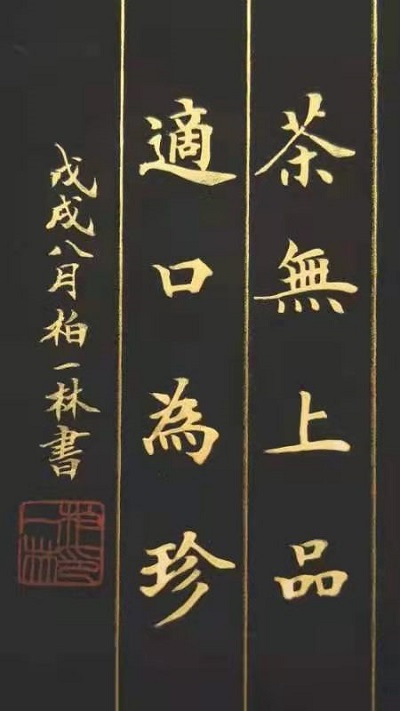 茶無上品
適口為珍
戊戌八月柏一林書
柏一林印